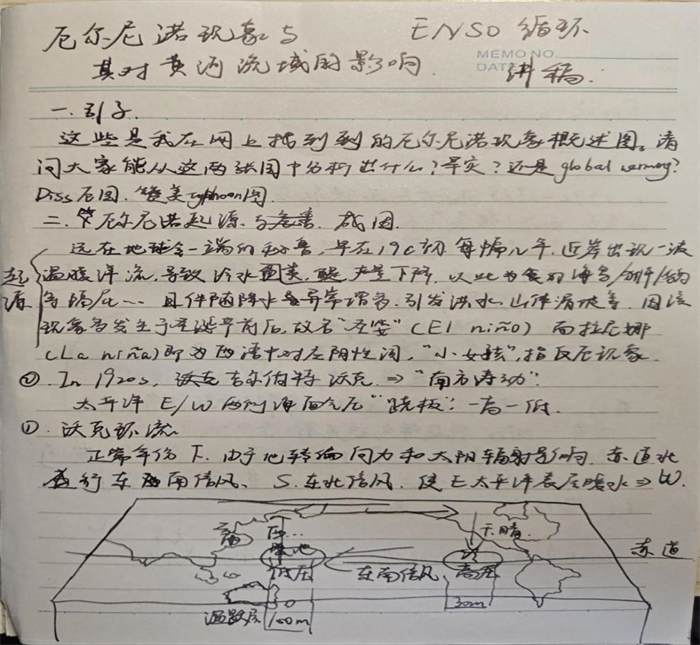 厄尔尼诺现象与 ENSO 循环
其对黄河流域的影响. 讲稿.
MEMO NO.
DATE
一.引子.
这些是我在网上找到的厄尔尼诺现象概述图。请
问大家能从这两张图中分析出什么?旱灾?还是global warming?
Diss 厄图.
二. 厄尔尼诺起源与 成因.
起源
远在地球另一端的秘鲁,早在19c初 每隔几年,近岸出现一波
温暖洋流,导致冷水 下降,以此为食的海鸟
因该
现象多发生于圣诞节前后,故名“圣婴”(El niño) 而拉尼娜
(La niña)即为西语中对应阴性词,“小女孩”,指反厄现象.
②. In 1920s, 沃克 吉尔伯特沃克 ⇒ “南方涛动”.
太平洋 E/W 两侧海面气压“跷板”.一高一低.
①. 沃克环流
正常年份下.由于地转偏向力和太阳辐射影响.赤道北
盛行东 南信风、S.东北信风.使E太平洋表层暖水⇒W.
下 晴.
赤道
低压
东南信风
高压
温跃层
100m
30m